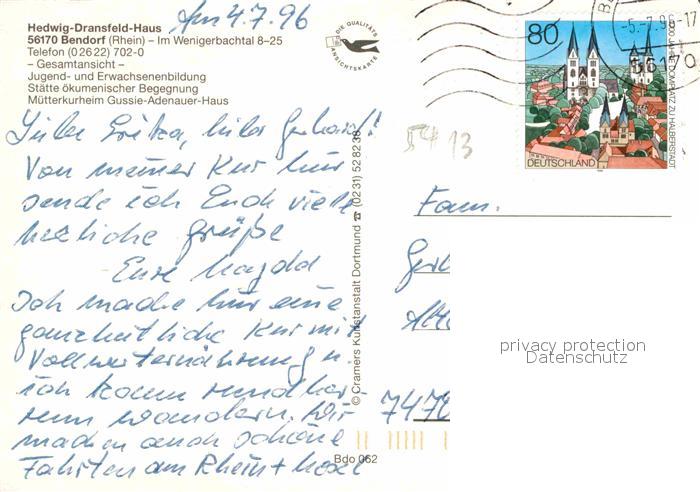 Am 4.7.96
Hedwig-Dransfeld-Haus
56170 Bendorf (Rhein) – Im Wenigerbachtal 8–25
Telefon (0 26 22) 702-0
– Gesamtansicht –
Jugend- und Erwachsenenbildung
Stätte ökumenischer Begegnung
Mütterkurheim Gussie-Adenauer-Haus
Liebe Erika, lieber Gerhard!
Von meiner Kur hier
sende ich Euch viele
herzliche Grüße
Eure Magda
Ich mache hier eine
ganzheitliche Kur mit
Vollwerternährung u.
ich kann wunderbar
wandern. Wir
machen auch schöne
Fahrten am Rhein + Mosel
© Cramers Kunstanstalt Dortmund ☎ (0231) 528238
Bdo 062
DIE QUALITÄTS
ANSICHTSKARTE
5413
80
1000 JAHRE DOMPLATZ ZU HALBERSTADT
DEUTSCHLAND
-5.-7.96-17
56170
Fam.
Gerh
747
privacy protection
Datenschutz